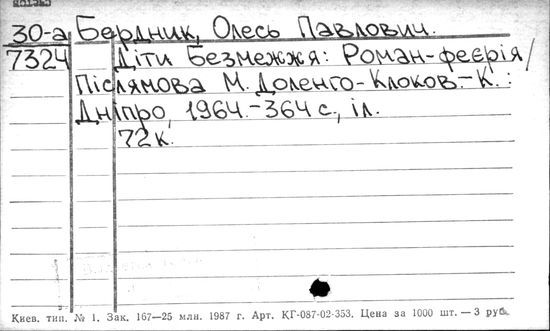 30-а Бердник, Олесь Павлович.
7324 Діти Безмежжя: Роман-феєрія/
Післямова М. Доленго-Клоков.-К.:
Дніпро, 1964.-364 с., іл.
72к.
Киев. тип. № 1. Зак. 167—25 млн. 1987 г. Арт. КГ-087-02-353. Цена за 1000 шт. — 3 руб.